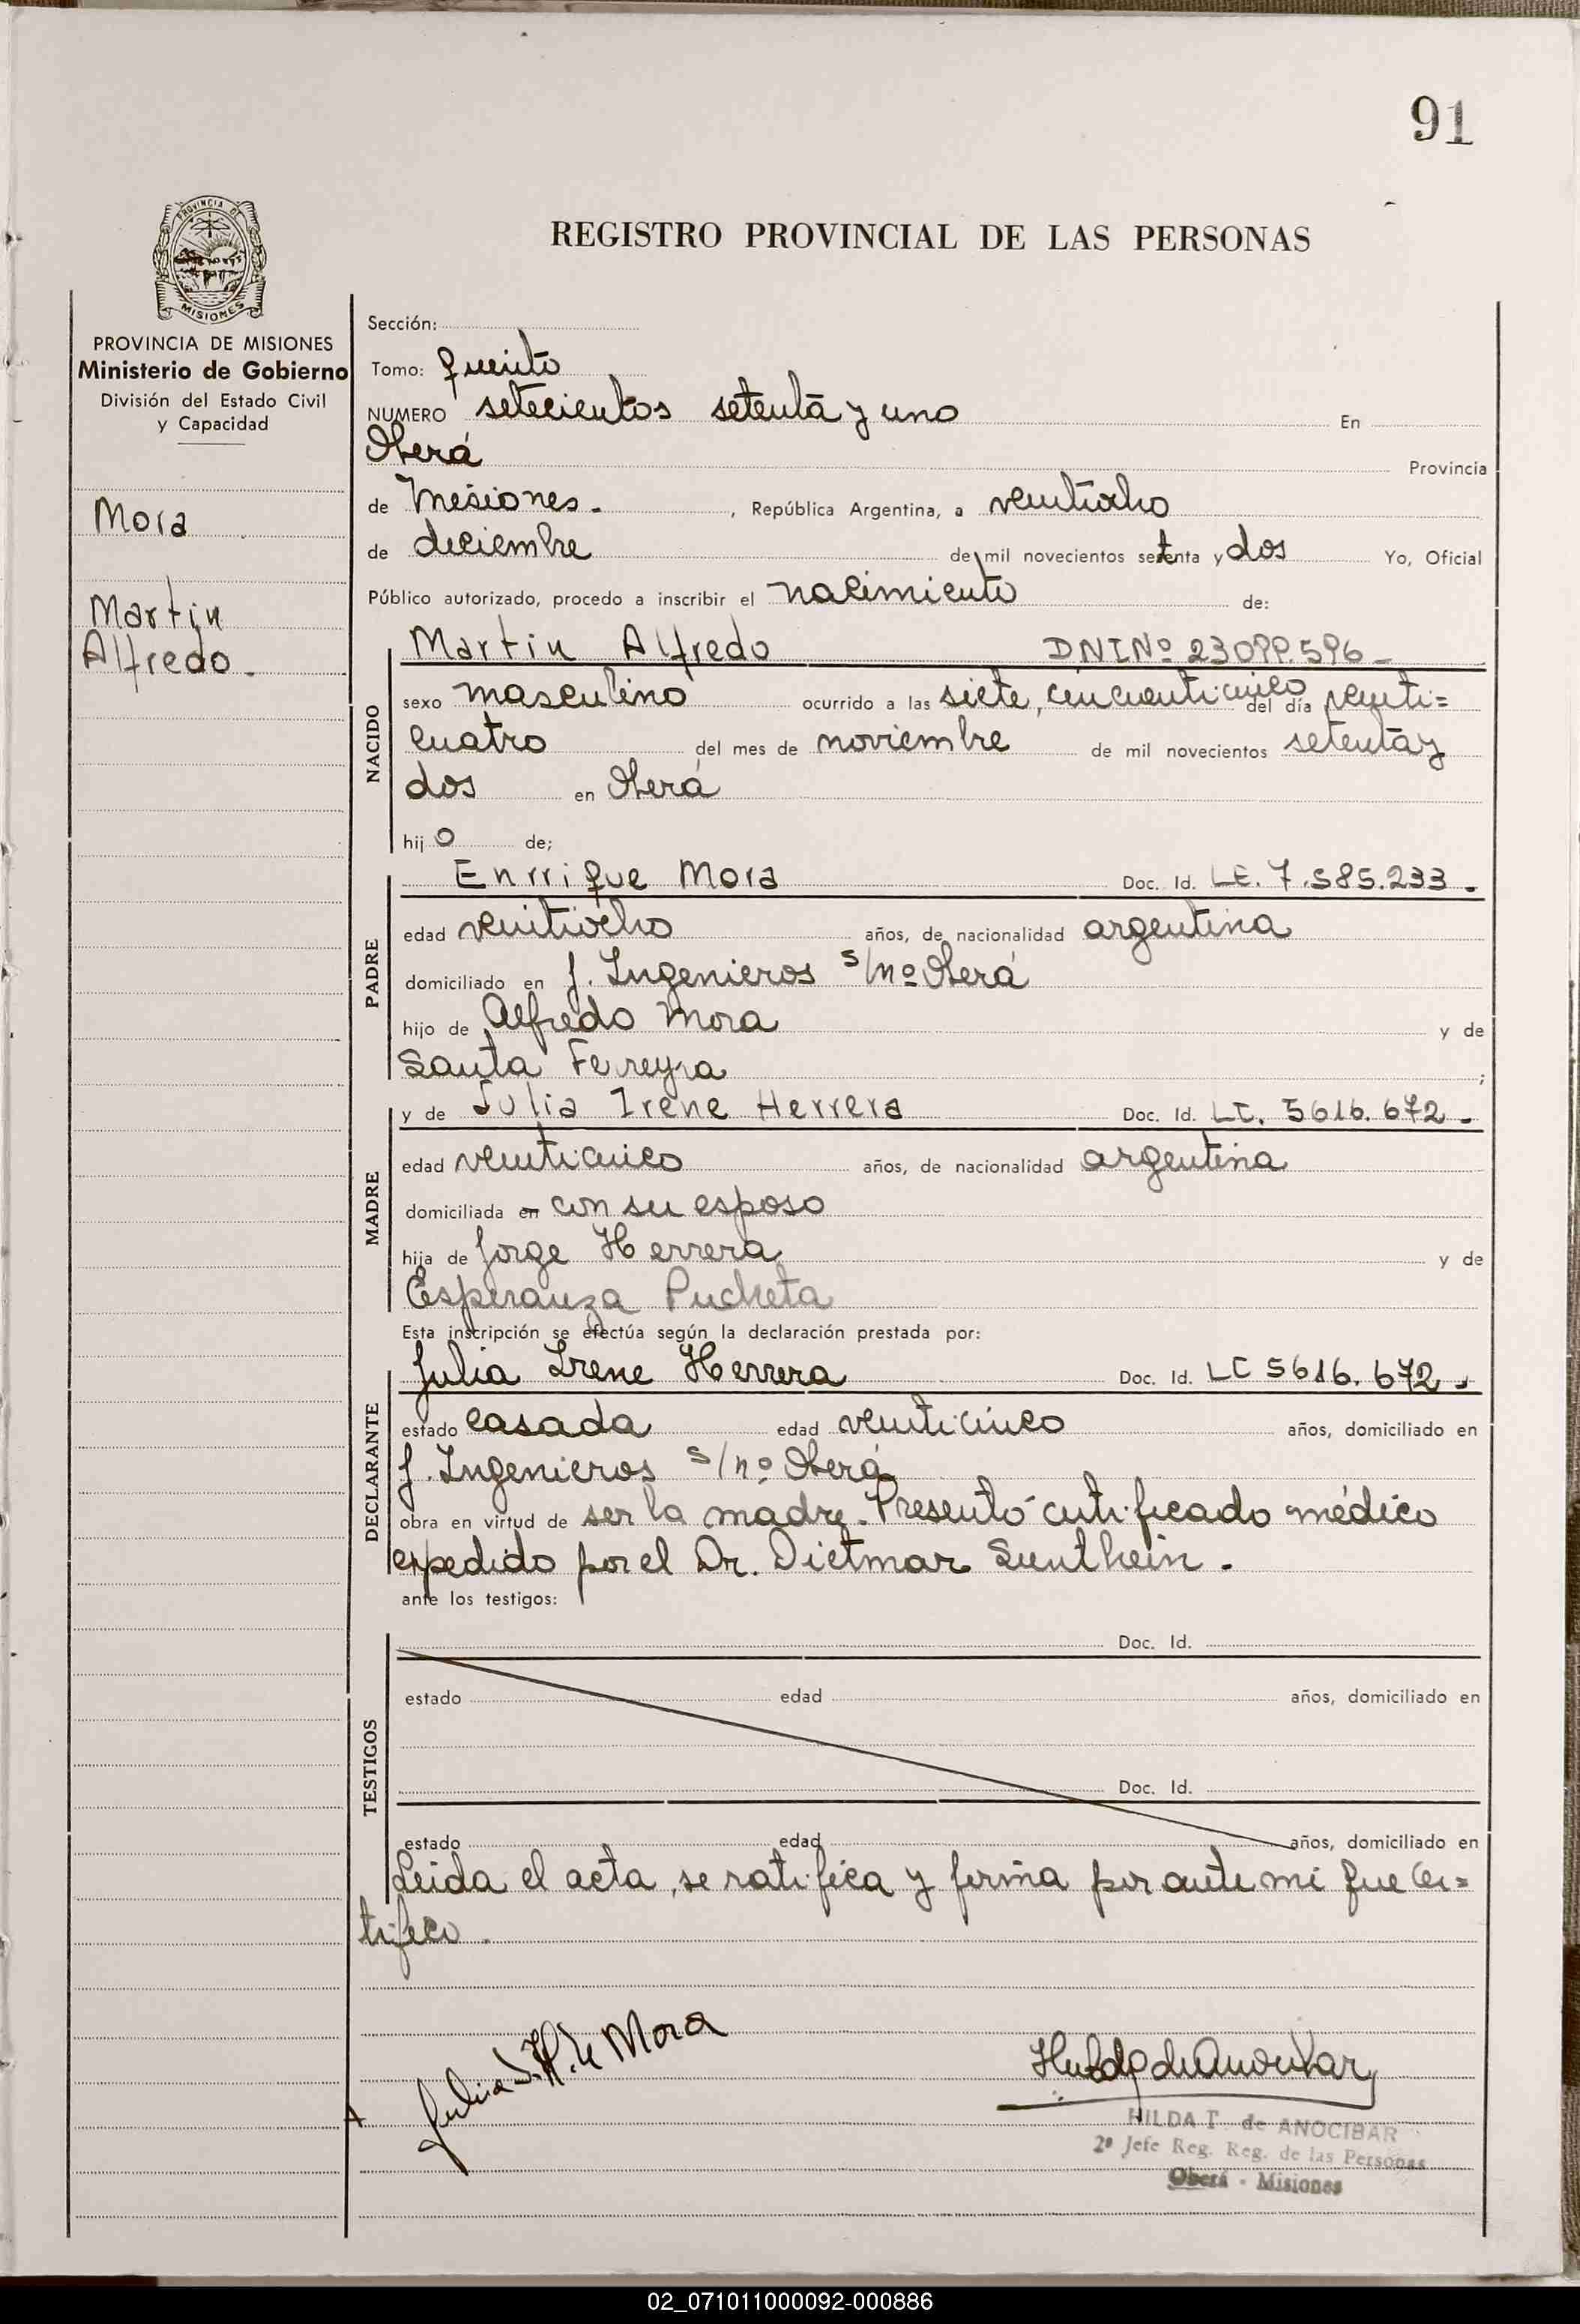 91
PROVINCIA DE
MISIONES
REGISTRO PROVINCIAL DE LAS PERSONAS
PROVINCIA DE MISIONES
Ministerio de Gobierno
División del Estado Civil
y Capacidad
Mora
Martin
Alfredo.
Sección:
Tomo: quinto
NUMERO setecientos setenta y uno En
Oberá Provincia
de Misiones. , República Argentina, a veintiocho
de diciembre de mil novecientos setenta y dos Yo, Oficial
Público autorizado, procedo a inscribir el nacimiento de:
NACIDO
Martin Alfredo DNI Nº
sexo masculino ocurrido a las siete, cincuenticinco del día veinti=
cuatro del mes de noviembre de mil novecientos setenta y
dos en Oberá
hijo de;
PADRE
Enrrique Mora Doc. Id. LE. 7.585.233.
edad veintiocho años, de nacionalidad argentina
domiciliado en J. Ingenieros s/nº Oberá
hijo de Alfredo Mora y de
Santa Ferreyra ;
MADRE
y de Julia Irene Herrera Doc. Id. LC. 5616.672.
edad veinticinco años, de nacionalidad argentina
domiciliada en con su esposo
hija de Jorge Herrera y de
Esperanza Pucheta
Esta inscripción se efectúa según la declaración prestada por:
DECLARANTE
Julia Irene Herrera Doc. Id. LC 5616.672.
estado casada edad veinticinco años, domiciliado en
J. Ingenieros s/nº Oberá
obra en virtud de ser la madre. Presentó certificado médico
expedido por el Dr. Dietmar Sunthein.
ante los testigos:
TESTIGOS
Doc. Id.
estado edad años, domiciliado en
Doc. Id.
estado edad años, domiciliado en
Leida el acta, se ratifica y firma por ante mi que cer=
tifico.
Julia I. H. de Mora
Hilda de Anocibar
HILDA T. de ANOCIBAR
2º Jefe Reg. Reg. de las Personas
Oberá - Misiones
02_071011000092-000886